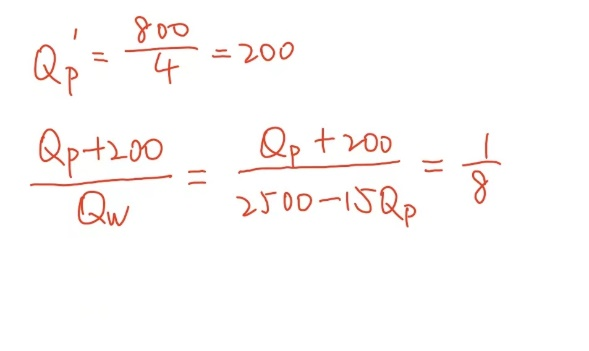 Qp' = 800/4 = 200
(Qp+200)/Qw = (Qp+200)/(2500-15Qp) = 1/8